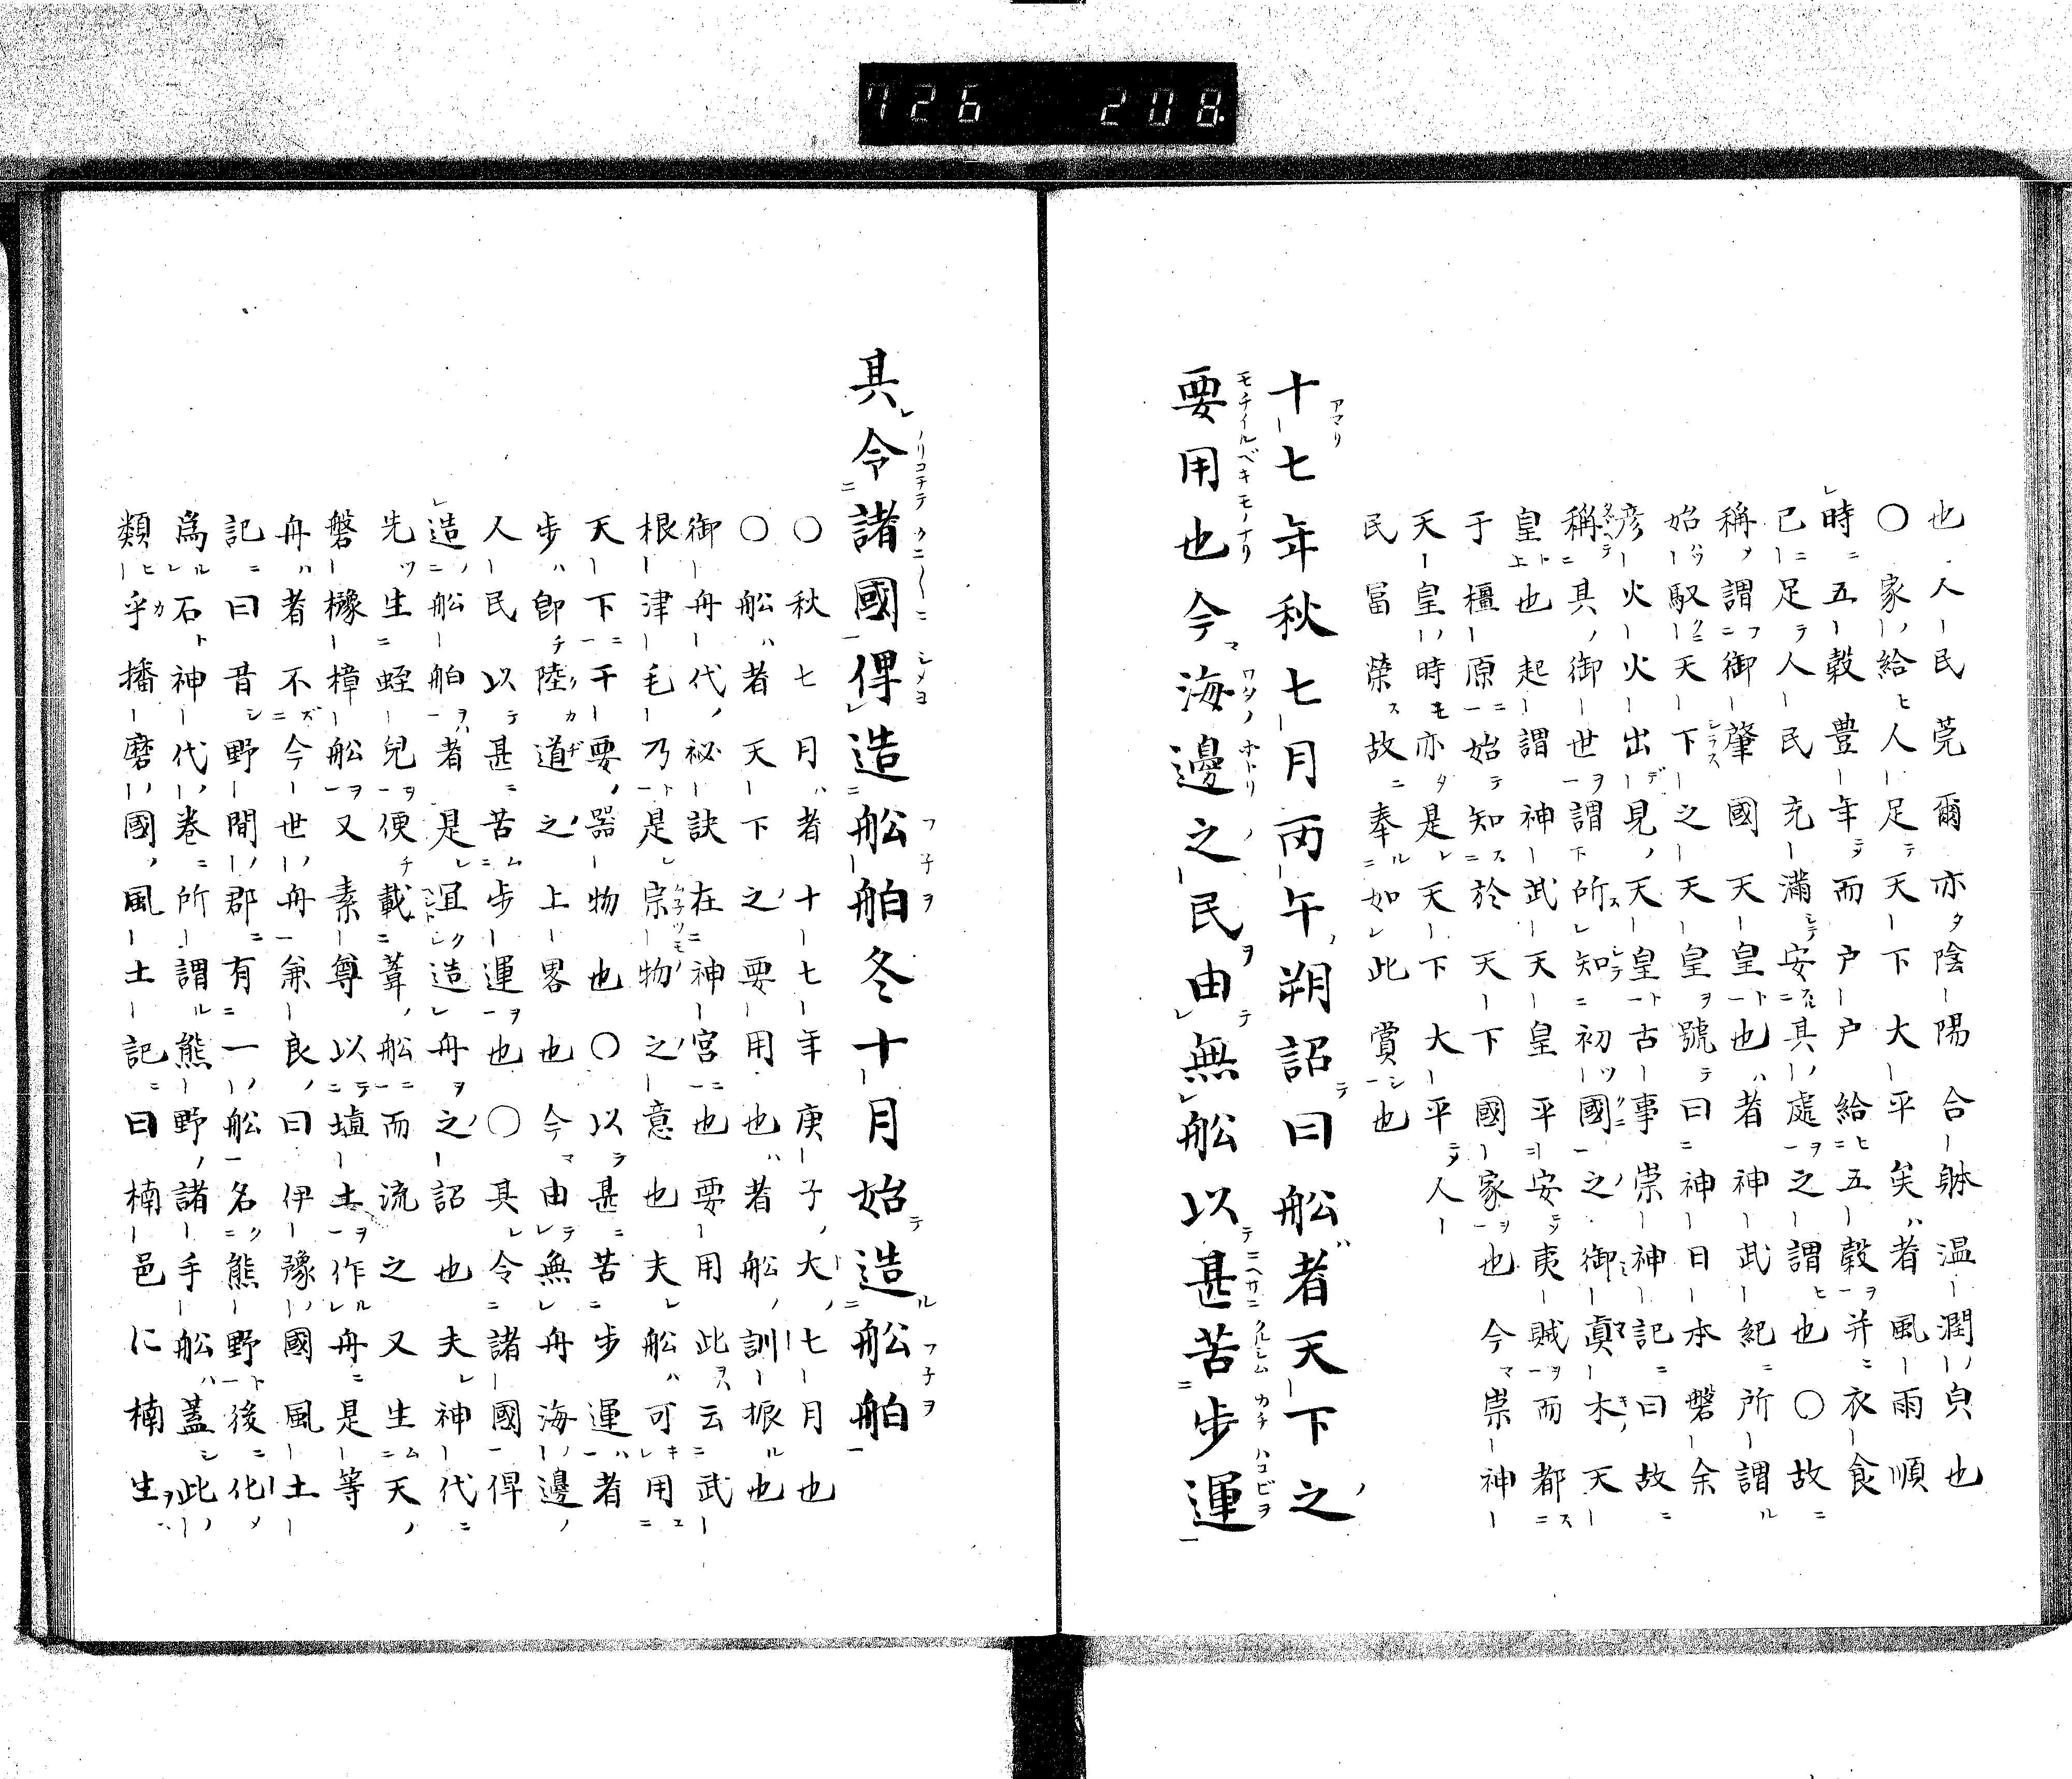 726 208
也人民莞爾亦陰陽合躰温潤皃也
〇家給人足天下大平矣者風雨順
時五穀豊年而户户給五穀并衣食
已足人民充満安其處之謂也〇故
稱謂御肇國天皇也者神武紀所謂
始馭天下之天皇號曰神日本磐余
彦火火出見天皇古事崇神記曰故
稱其御世謂所知初國之御真木天
皇也起謂神武天皇平安夷賊而都
于橿原始知於天下國家也今崇神
天皇時亦是天下大平人
民冨榮故奉如此賞也
十七年秋七月丙午朔詔曰舩者天下之
要用也今海邊之民由無舩以甚苦步運
其令諸國俾造舩舶冬十月始造舩舶
〇秋七月者十七年庚子大七月也
〇舩者天下之要用也者舩訓振也
御舟代祕訣在神宮也要用此云武
根津毛乃是宗物之意也夫舩可用
天下千要器物也〇以甚苦步運者
步即陸道之上畧也今由無舟海邊
人民以甚苦步運也〇其令諸國俾
造舩舶者是宜造舟之詔也夫神代
先生蛭兒便載葦舩而流之又生天
磐櫲樟舩又素尊以埴土作舟是等
舟者不今世舟兼良曰伊豫國風土
記曰昔野間郡有一舩名熊野後化
爲石神代卷所謂熊野諸手舩蓋此
類乎播磨國風土記曰楠邑に楠生